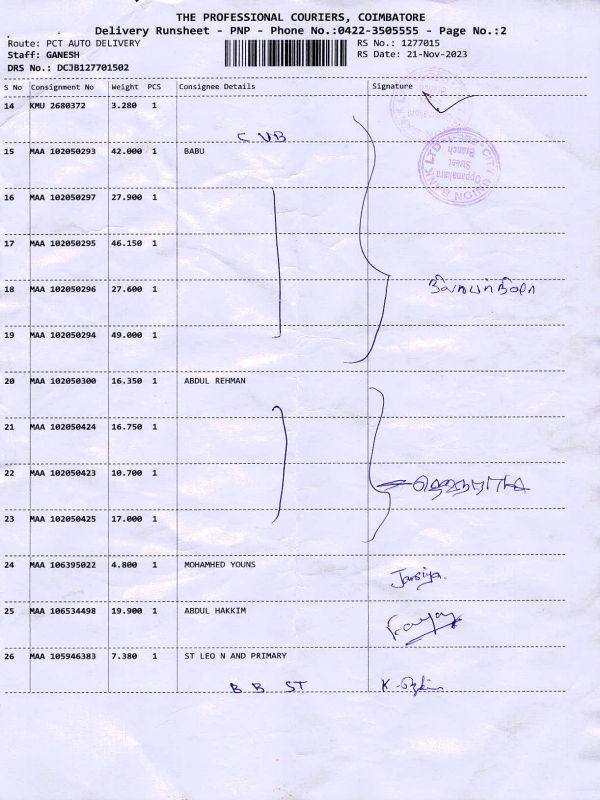 THE PROFESSIONAL COURIERS, COIMBATORE
Delivery Runsheet - PNP - Phone No.:0422-3505555 - Page No.:2
Route: PCT AUTO DELIVERY RS No.: 1277015
Staff: GANESH RS Date: 21-Nov-2023
DRS No.: DCJB127701502
S No Consignment No Weight PCS Consignee Details Signature
14 KMU 2680372 3.280 1
C UB
15 MAA 102050293 42.000 1 BABU
CITY UNION BANK LTD
Oppanakara
Street
Branch
16 MAA 102050297 27.900 1
17 MAA 102050295 46.150 1
18 MAA 102050296 27.600 1
19 MAA 102050294 49.000 1
20 MAA 102050300 16.350 1 ABDUL REHMAN
21 MAA 102050424 16.750 1
22 MAA 102050423 10.700 1
23 MAA 102050425 17.000 1
24 MAA 106395022 4.800 1 MOHAMHED YOUNS
25 MAA 106534498 19.900 1 ABDUL HAKKIM
26 MAA 105946383 7.380 1 ST LEO N AND PRIMARY
B B ST